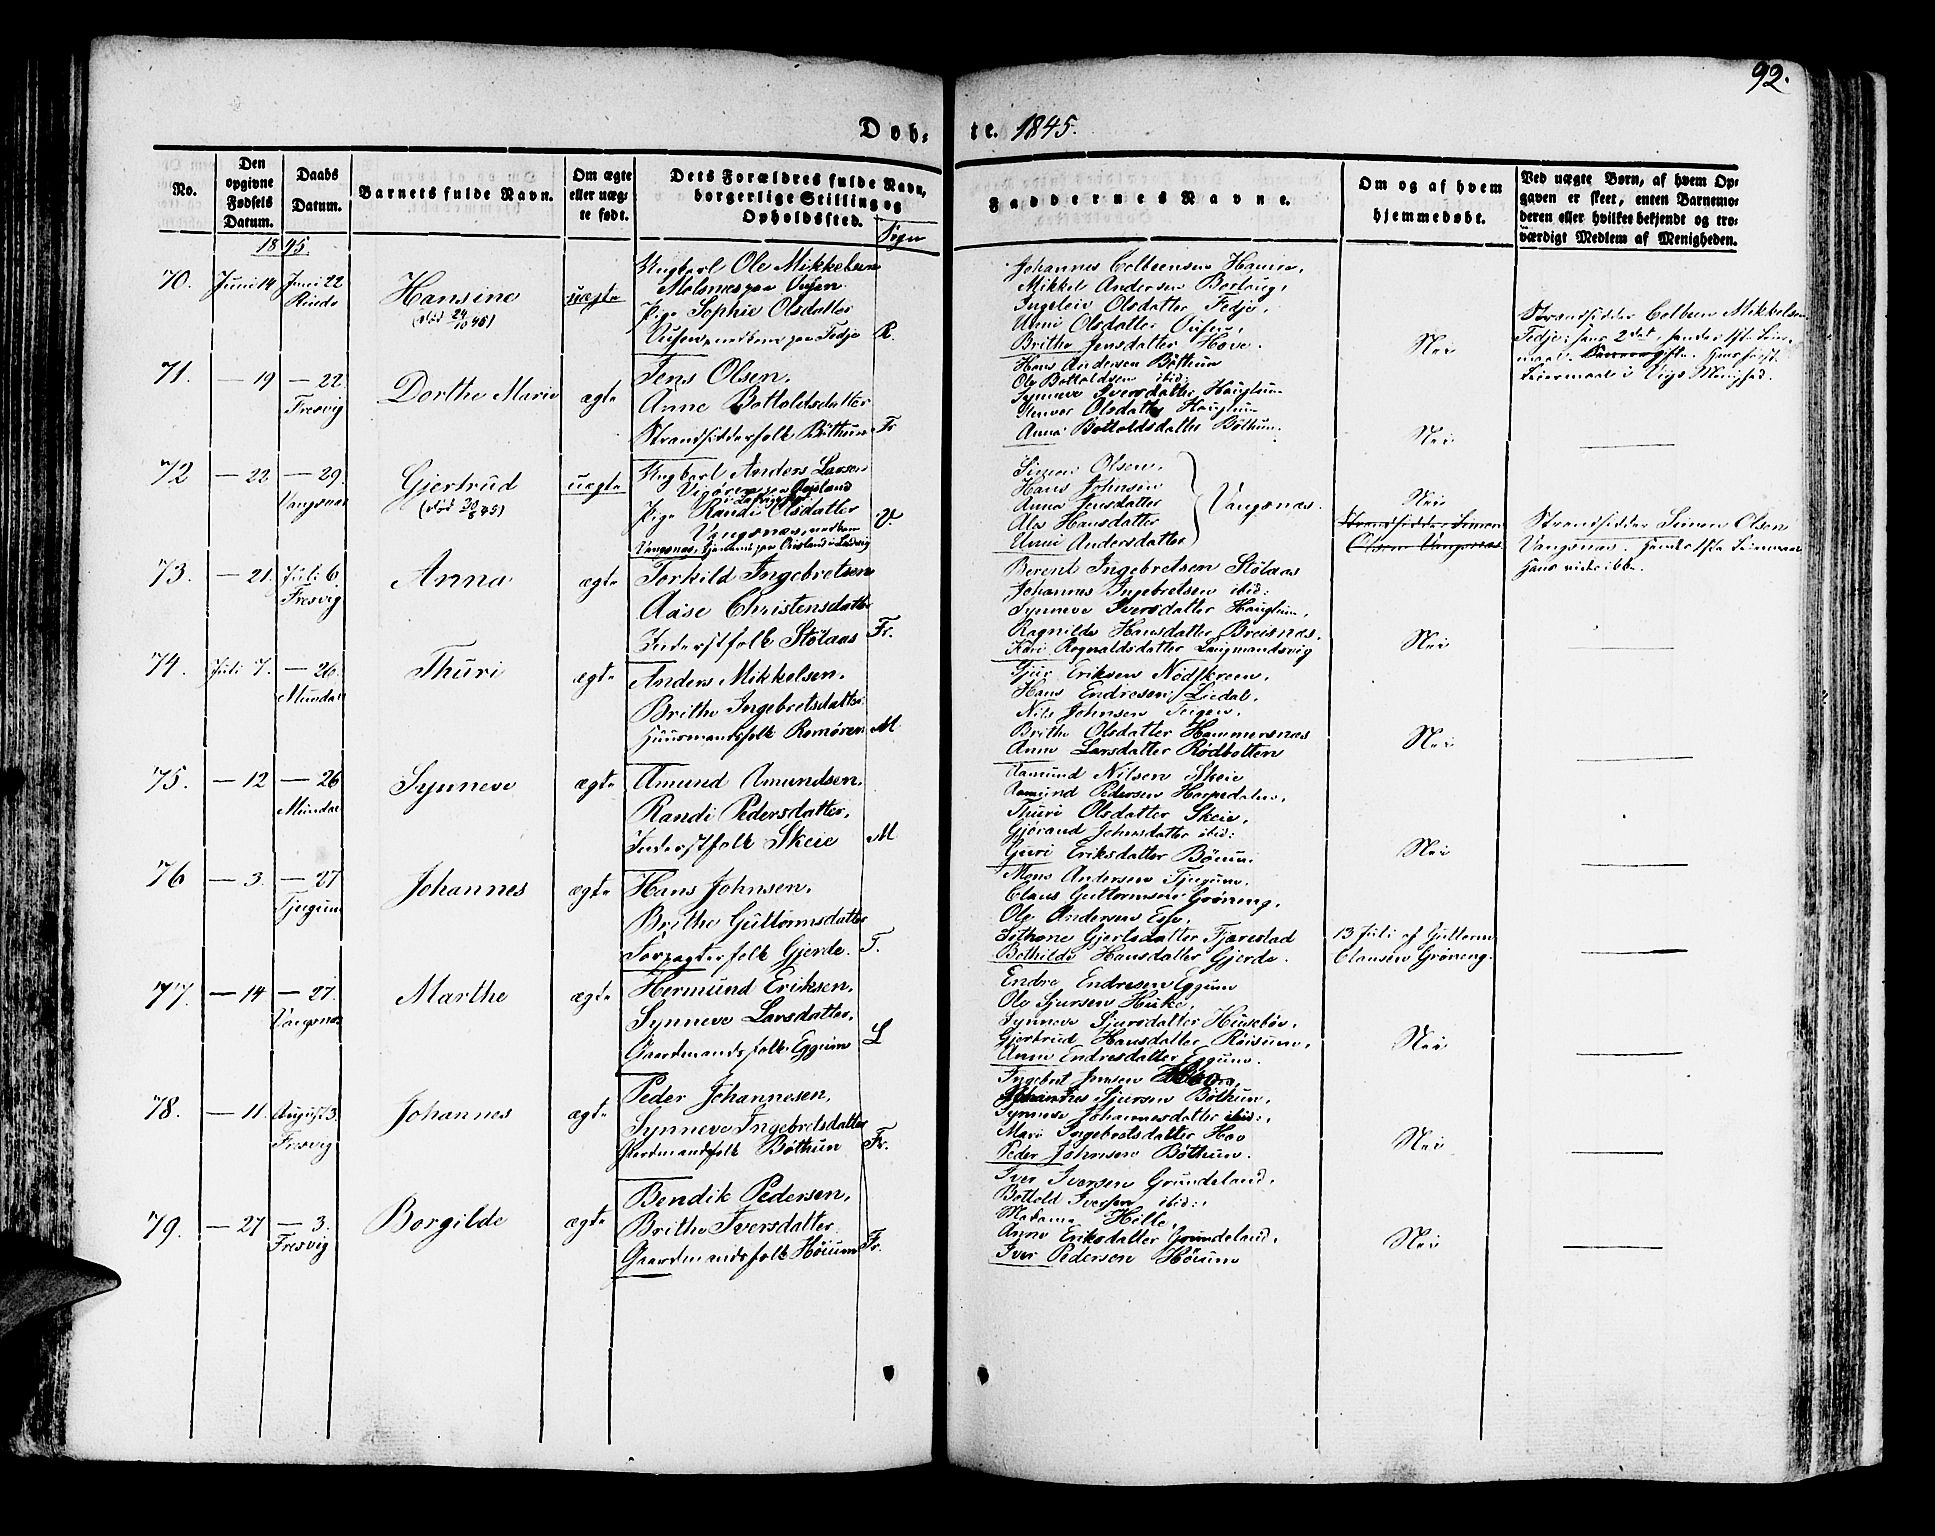 92.
Døb- te. 1845.
No.
Den opgivne Fødsels Datum.
Daabs Datum.
Barnets fulde Navn.
Om ægte eller uægte født.
Dets Forældres fulde Navn, borgerlige Stilling og Opholdssted.
Sogn
Faddernes Navne.
Om og af hvem hjemmedøbt.
Ved uægte Børn, af hvem Opgaven er skeet, enten Barnemoderen eller hvilket bekjendt og troværdigt Medlem af Menigheden.
1845.
70. Juni 14 Juni 22 Hansine uægte
Rinde
(død 24/10 45)
Ungkarl Ole Mikkelsen
Pige Sophie Olsdatter
R.
Mikkel Andersen Borlaug,
Ingeleiv Olsdatter Fedje,
Unni Olsdatter
Brithe Jensdatter Hove.
Nei
Strandsidder Colbeen Mikkelsen
Fedje; hans 2det, hendes 1ste Leier-
maal.
Leiermaal i Viigs Menighed.
71. — 19 — 22. Dorthe Marie ægte
Fresvig
Jens Olsen,
Anne Bottoldsdatter
Strandsidderfolk Böthun Fr.
Hans Andersen Böthun
Ole Bottoldsen ibid:
Synneve Iversdatter Hauglum
Olsdatter Hauglum
Anna Bottoldsdatter Böthun.
Nei
72 — 22 — 29. Gjertrud uægte
Vangsnæs
(død 20/8 45)
Ungkarl Anders Larsen
Pige Randi Olsdatter
Vangsnæs,
V.
Simon Olsen,
Hans Johnsen
Anna Jensdatter
Ales Hansdatter
Unni Andersdatter
Vangsnæs.
Nei
Strandsidder Simon
Olsen Vangsnæs
Strandsidder Simon Olsen
Vangsnæs. Hendes 1ste Leiermaal
Hans vides ikke.
73. — 21. Juli 6. Anna ægte
Fresvig
Torkild Ingebretsen
Aase Christensdatter
Inderstfolk Stölaas Fr.
Berent Ingebretsen Stölaas
Johannes Ingebretsen ibid:
Synneve Iversdatter Hauglum,
Ragnilde Hansdatter Breisnæs.
Kari Rognaldsdatter Langmandsvig
Nei
74. Juli 7. — 26. Thuri ægte
Mundal
Anders Mikkelsen,
Brithe Ingebretsdatter
Huusmandsfolk Romören M.
Gjur Eriksen Nödskreen,
Hans Endresen Liedal,
Nils Johnsen Teigen,
Brithe Olsdatter Hammersnæs
Anne Larsdatter Rödbotten
Nei
75. — 12 — 26 Synneve ægte
Mundal
Amund Amundsen,
Randi Pedersdatter,
Inderstfolk Skeie M
Aamund Nilsen Skeie
Aamund Pedersen Harpedalen,
Thuri Olsdatter Skeie,
Gjörand Johnsdatter ibid:
Guri Eriksdatter Böium
Nei
76 — 3. — 27 Johannes ægte
Tjugum
Hans Johnsen,
Brithe Guttormsdatter
Forpagterfolk Gjerde. T.
Mons Andersen Tjugum,
Claus Guttormsen Gröneng,
Ole Andersen Esse,
Sethone Gjertsdatter Tjærestad
Bothilde Hansdatter Gjerde.
13 Juli af Guttorm
Clausen Gröneng.
77. — 14 — 27. Marthe ægte
Vangsnæs
Hermund Eriksen,
Synneve Larsdatter,
Gaardmandsfolk Eggum L
Endre Endresen Eggum
Ole Sjursen Huke,
Synneve Sjursdatter Husebö,
Gjertrud Hansdatter Röisum,
Anne Endresdatter Eggum.
Nei
78. — 11. August 3. Johannes ægte
Fresvig
Peder Johannesen,
Synneve Ingebretsdatter
Gaardmandsfolk Böthun Fr.
Ingebret Jensen
Johannes Sjursen Böthun,
Synneve Johannesdatter ibid:,
Mari Ingebretsdatter Hov
Peder Johnsen Böthun.
Nei
79. — 27 — 3. Borgilde ægte
Fresvig
Bendik Pedersen,
Brithe Iversdatter
Gaardmandsfolk Höium Fr.
Iver Iversen Grundeland,
Bottold Iversen ibid:,
Madame Hille,
Anne Eriksdatter Grundeland,
Iver Pedersen Höium
Nei